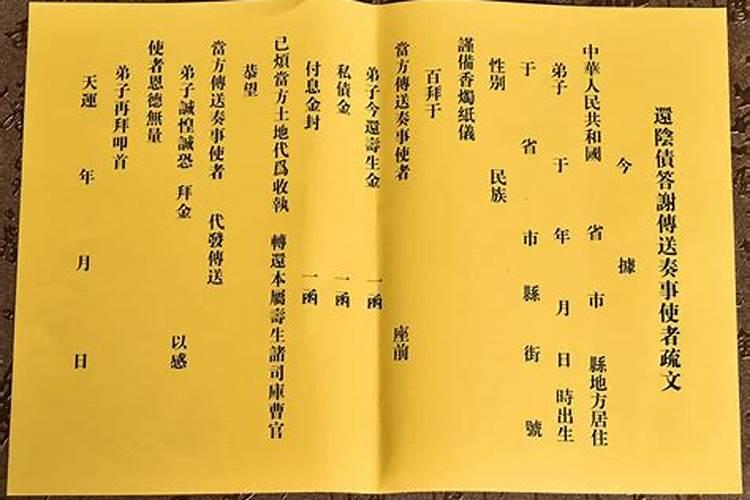 還陰債答謝傳送奏事使者疏文
今 據
中華人民共和國 省 市 縣地方居住
弟子 于 年 月 日 時出生
于 省 市 縣 街 號
性別 民族
謹備香燭紙儀
百拜于
當方傳送奏事使者 座前
弟子今還壽生金 一函
私債金 一函
付息金封 一函
已煩當方土地代爲收執 轉還本屬壽生諸司庫曹官
恭望
當方傳送奏事使者 代發傳送
弟子誠惶誠恐 拜金 以感
使者恩德無量
弟子再拜叩首
天運 年 月 日